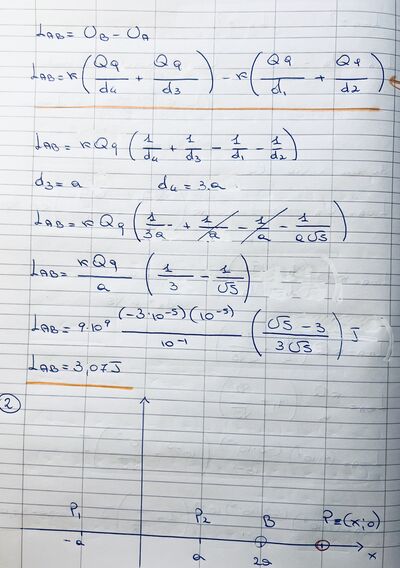 LAB = UB - UA
LAB = K(Qq/d4 + Qq/d3) - K(Qq/d1 + Qq/d2)
LAB = K Qq (1/d4 + 1/d3 - 1/d1 - 1/d2)
d3 = a d4 = 3a
LAB = K Qq (1/3a + 1/a - 1/a - 1/a√5)
LAB = KQq/a (1/3 - 1/√5)
LAB = 9·10⁹ (-3·10⁻⁵)(10⁻⁵)/10⁻¹ (√5 - 3/3√5) J
LAB = 3,07 J
2
P1 P2 B P=(x;0)
-a a 2a x